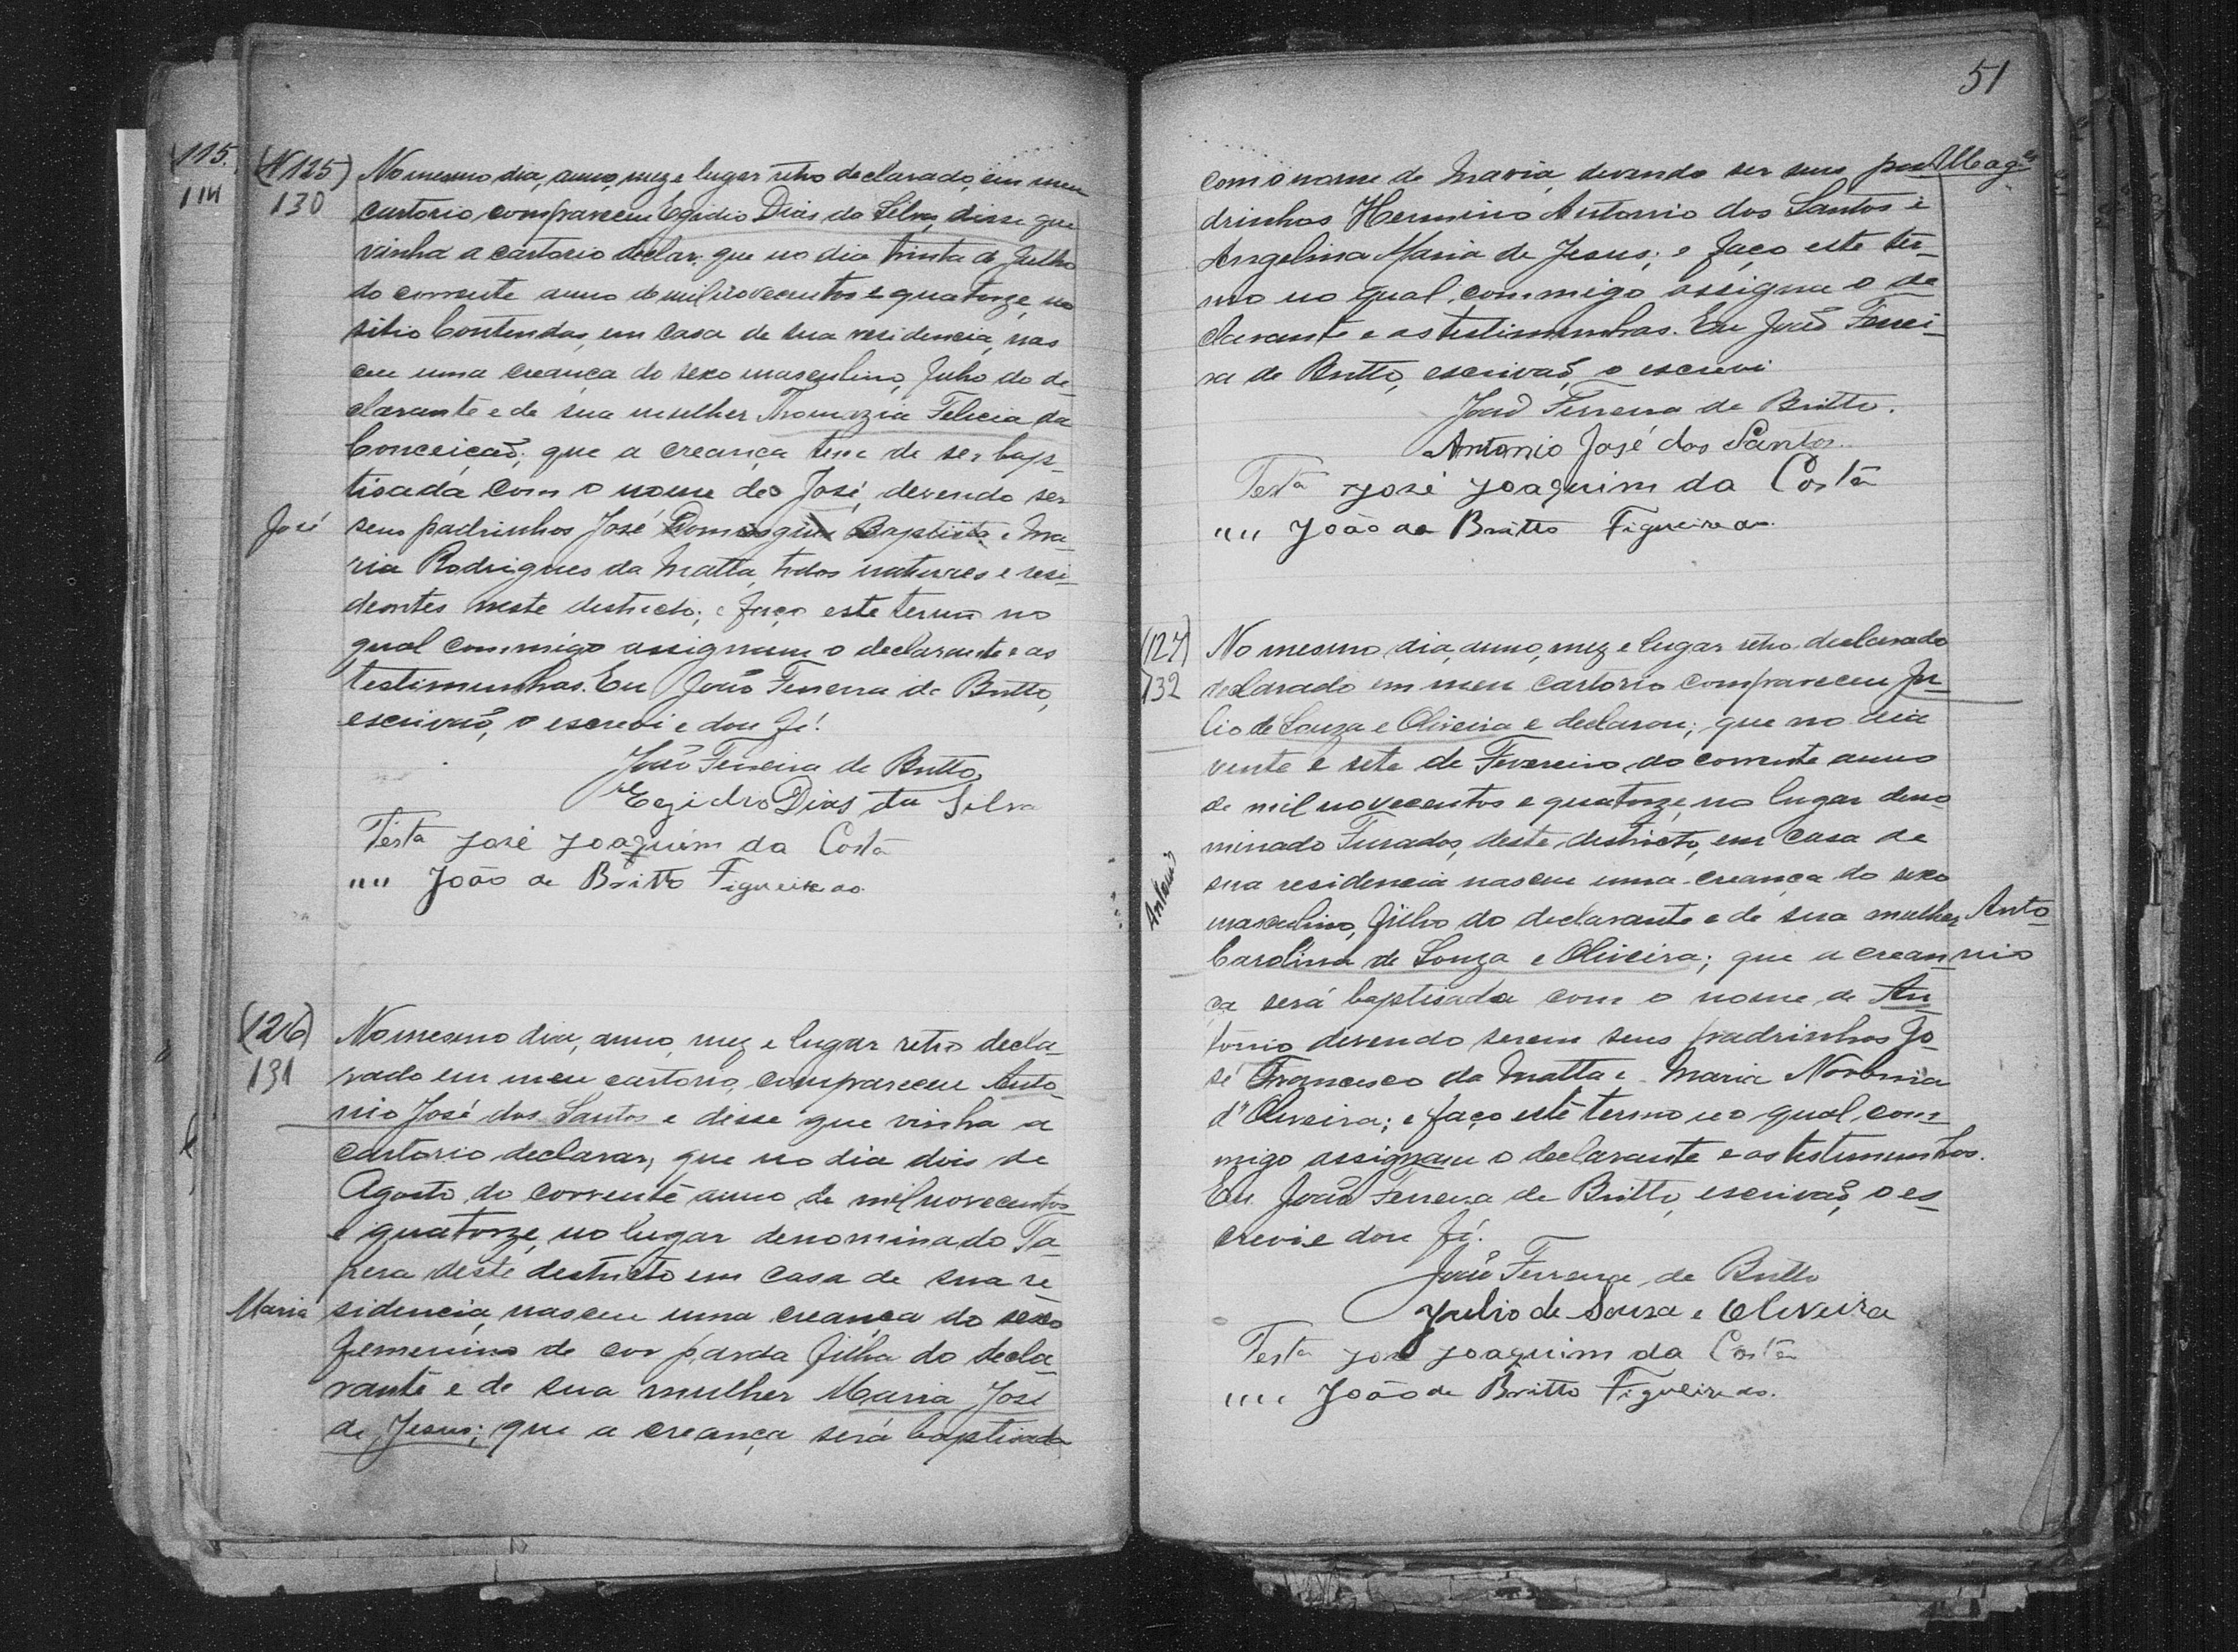 115.
114
(N 125)
130
No mesmo dia, anno, mez e lugar retro declarado, em meu
cartorio compareceu Egidio Dias da Silva, disse que
vinha a cartorio declar, que no dia trinta de Julho
do corrente anno de mil novecentos e quatorze, no
sitio Contendas, em casa de sua residencia, nas
ceu uma creança do sexo masculino, filho do de-
clarante e de sua mulher Thomazia Felicia da
Conceição; que a creança tem de ser bap-
tisada com o nome de José, devendo ser
José
seus padrinhos José Domingues Baptista e Ma-
ria Rodrigues da Matta, todos naturaes e resi-
dentes neste destricto; e faço este termo no
qual commigo assignam o declarante e as
testimunhas. Eu João Ferreira de Britto,
escrivão, o escrevi e dou fé.
João Ferreira de Britto,
Egidio Dias da Silva
Testa José Joaquim da Costa
"" João de Britto Figueiredo.
(126)
131
No mesmo dia, anno, mez e lugar retro decla-
rado em meu cartorio, compareceu Anto-
nio José dos Santos e disse que vinha a
cartorio declarar, que no dia dois de
Agosto do corrente anno de mil novecentos
e quatorze, no lugar denominado Ta-
pera deste destricto em casa de sua re-
Maria
sidencia, nasceu uma creança do sexo
femenino de cor parda filha do decla-
rante e de sua mulher Maria José
de Jesus; que a creança será baptisada
51
com o nome de Maria, devendo ser seus pa-
drinhos Hermino Antonio dos Santos e
Angelina Maria de Jesus; e faço este ter-
mo no qual, commigo assigna o de-
clarante e as testimunhas. Eu João Ferrei-
ra de Britto, escrivão, o escrevi
João Ferreira de Britto.
Antonio José dos Santos
Testa José Joaquim da Costa
"" João de Britto Figueiredo.
(127)
132
No mesmo, dia, anno, mez e lugar retro declarado
declarado em meu cartorio compareceu Ju-
lio de Souza e Oliveira e declarou; que no dia
vente e sete de Fevereiro do corrente anno
de mil novecentos e quatorze, no lugar deno
minado Furados, deste destricto, em casa de
sua residencia nasceu uma creança do sexo
Antonio
masculino, filho do declarante e de sua mulher
Anto-
nio
Carolina de Souza e Oliveira; que a crean
ça será baptisada com o nome de An
tonio devendo serem seus padrinhos Jo-
sé Francisco da Matta e Maria
d'Oliveira; e faço este termo no qual, com-
migo assignam o declarante e as testimunhas.
Eu João Ferreira de Britto, escrivão, o es-
crevi e dou fé.
João Ferreira de Britto
Julio de Souza e Oliveira
Testa José Joaquim da Costa
"" João de Britto Figueiredo.